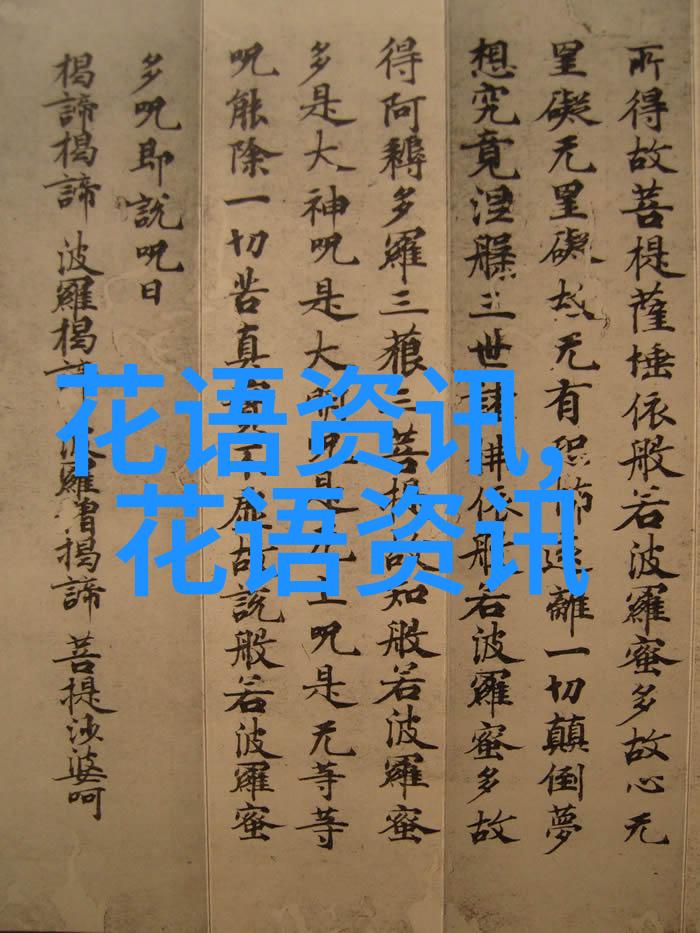 所得故菩提薩埵依般若波羅蜜多故心无
罣礙无罣礙故无有恐怖遠離一切顛倒夢
想究竟涅槃三世諸佛依般若波羅蜜多故
得阿耨多羅三藐三菩提故知般若波羅蜜
多是大神呪是大明呪是无上呪是无等等
呪能除一切苦真實不虛故說般若波羅蜜
多呪即說呪曰
揭諦揭諦 波羅揭諦 波羅僧揭諦 菩提沙婆呵
花语资讯,
花语资讯